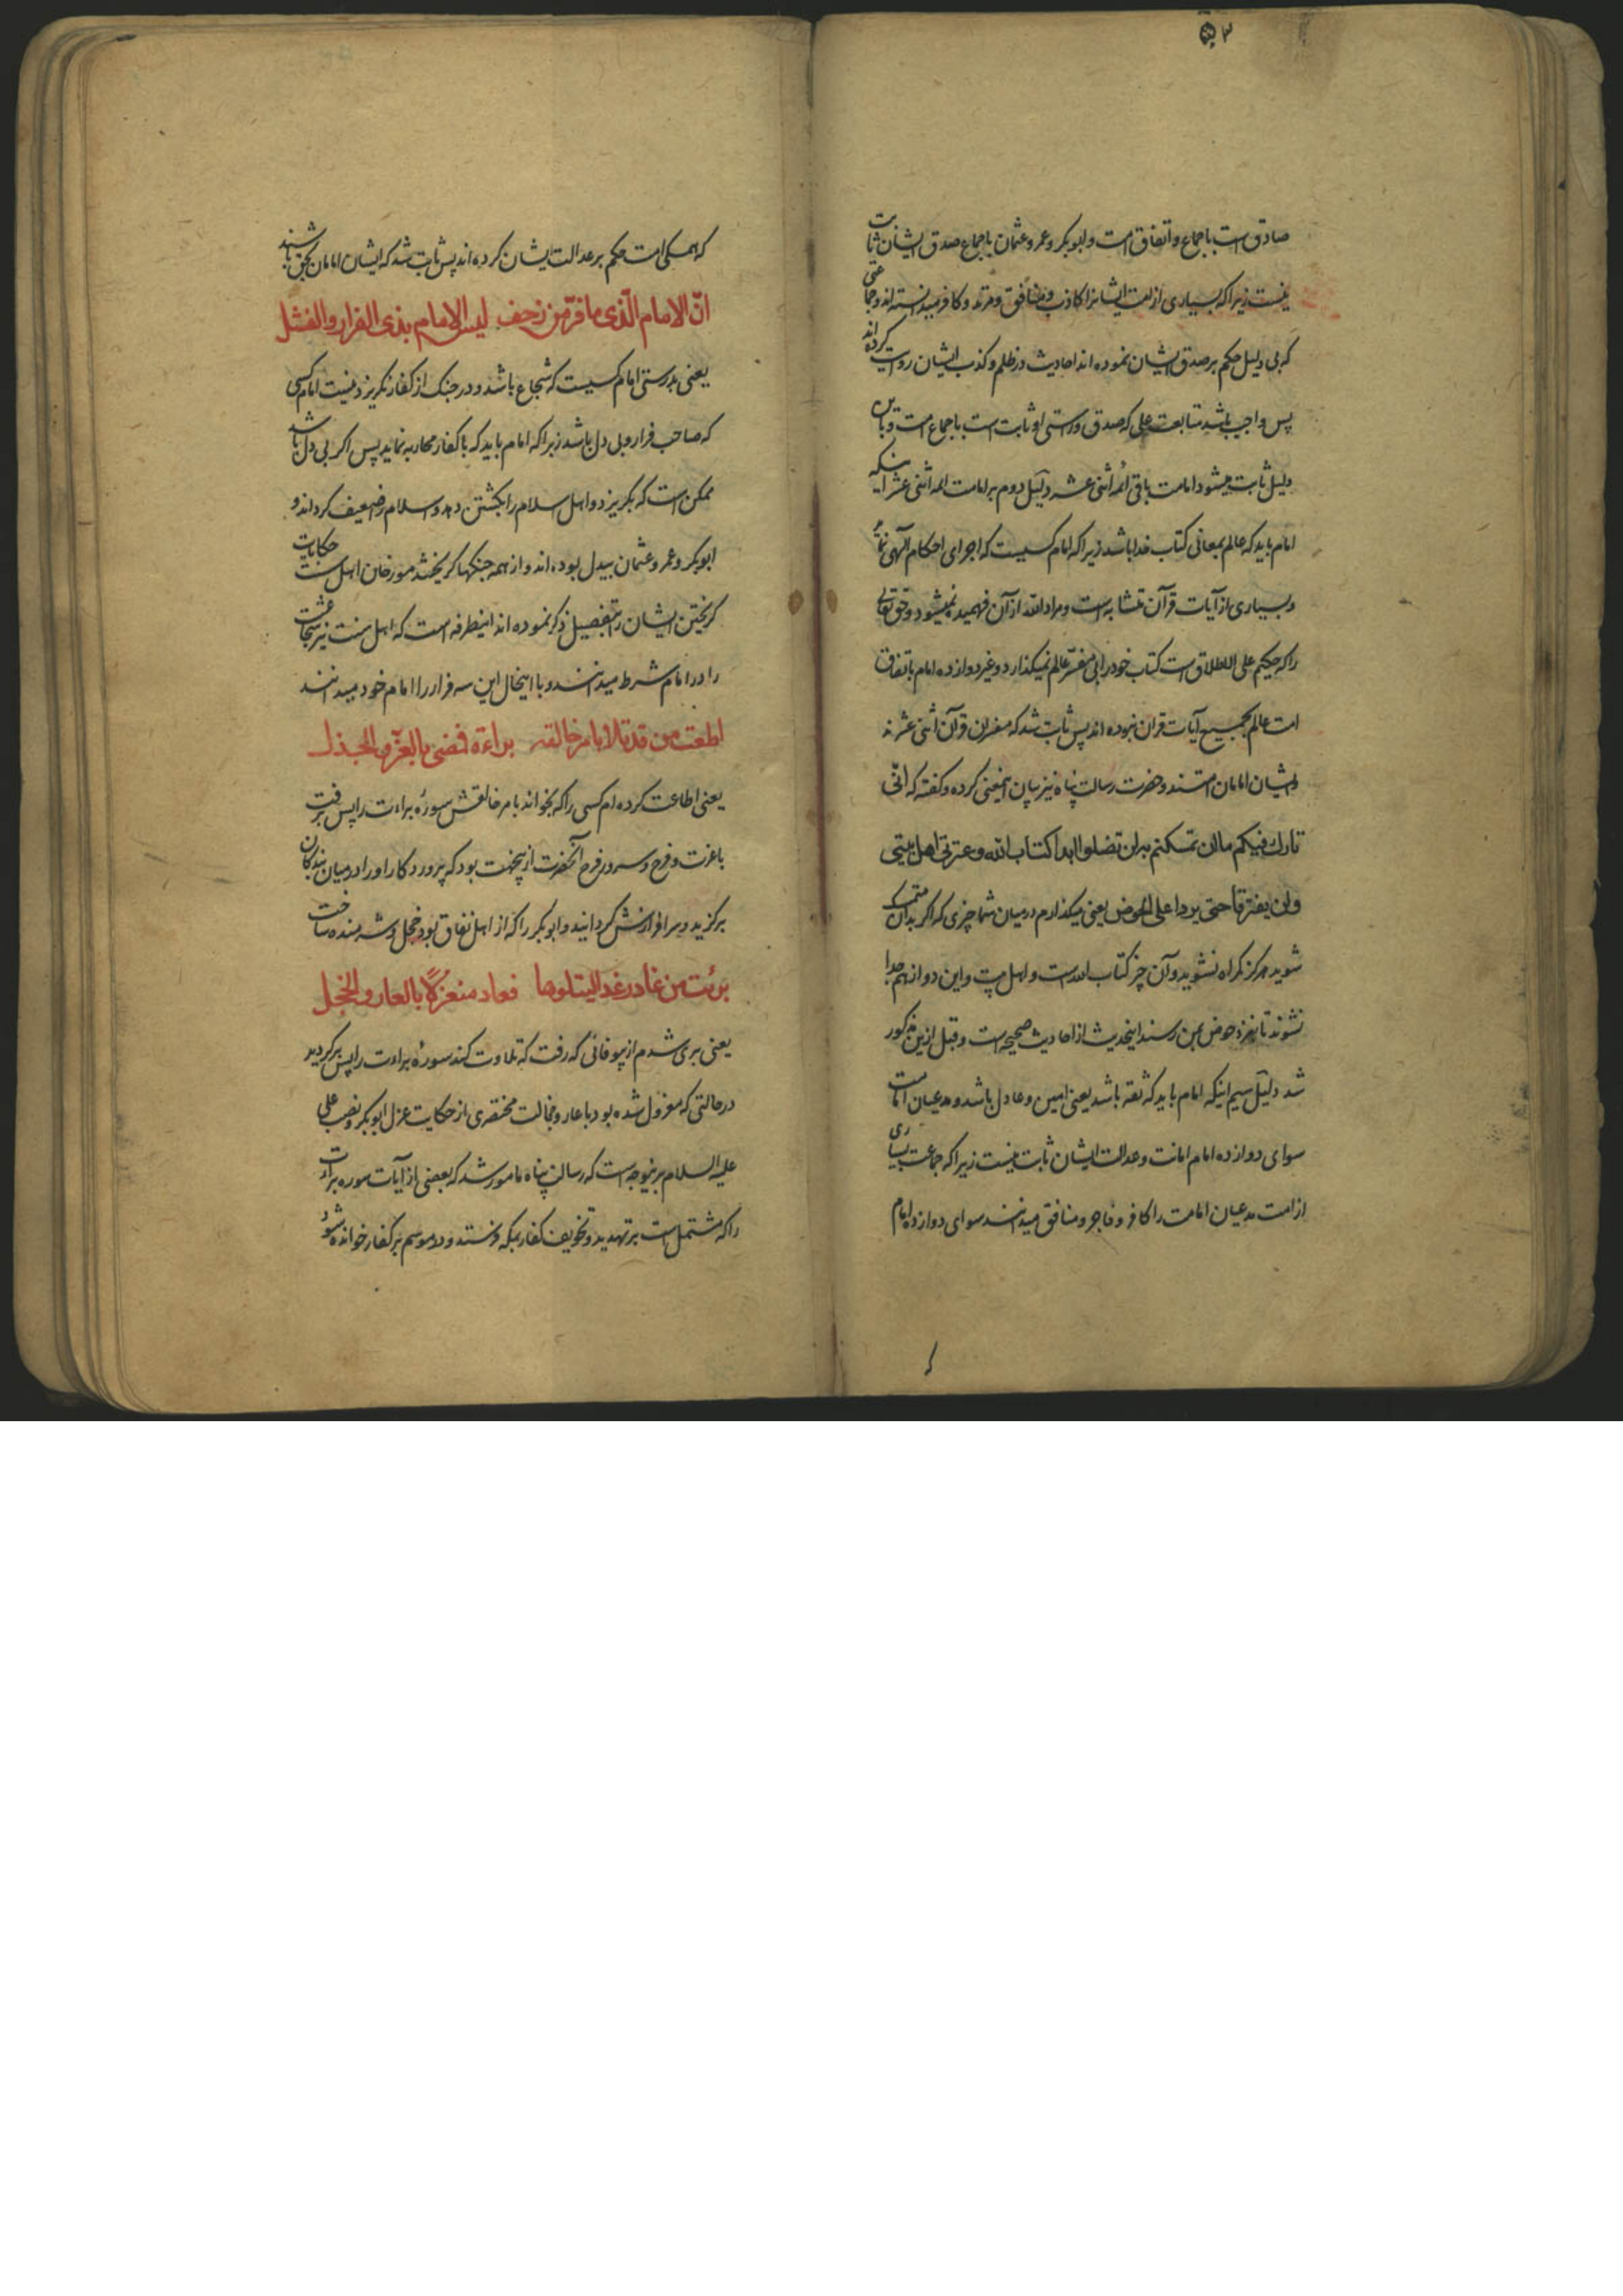 ۳
صادق است باجماع و اتفاق امت و ابوبکر و عمر و عثمان باجماع صدق ایشان ثابت
نیست زیرا که بسیاری از امت ایشانرا کاذب و منافق و مرتد و کافر میدانسته اند و جماعتی
که بی دلیل حکم بر صدق ایشان نموده اند احادیث در ظلم و کذب ایشان روایت کرده اند
پس واجب باشد متابعت علی که صدق و راستی او ثابت است باجماع امت و باین
دلیل ثابت میشود امامت باقی ائمه اثنی عشر دلیل دوم بر امامت ائمه اثنی عشر اینکه
امام باید که عالم بمعانی کتاب خدا باشد زیرا که امام کسیست که اجرای احکام الهی نماید
و بسیاری از آیات قرآن متشابه است و مراد الله از آن فهمیده نمیشود و حق تعالی
را که حکیم علی الاطلاق است کتاب خود را بی مفسر عالم نمیگذارد و غیر دوازده امام باتفاق
امت عالم بجمیع آیات قران نبوده اند پس ثابت شد که مفسران قرآن اثنی عشر ند
و ایشان امامان امتند و حضرت رسالت پناه نیز بیان اینمعنی کرده و گفته که انّی
تارك فیکم ما ان تمسکتم به لن تضلوا ابدا کتاب الله و عترتی اهل بیتی
ولن یفترقا حتی یردا علی الحوض یعنی میگذارم در میان شما چیزی که اگر بدان متمسک
شوید هرگز گمراه نشوید و آن چیز کتاب الله است و اهل بیت و این دو از هم جدا
نشوند تا بنزد حوض بمن رسند اینحدیث از احادیث صحیحه است و قبل ازین مذکور
شد دلیل سیم اینکه امام باید که ثقه باشد یعنی امین و عادل باشد و مدعیان امامت
سوای دوازده امام امانت و عدالت ایشان ثابت نیست زیرا که جماعت بسیاری
از امت مدعیان امامت را کافر و فاجر و منافق میدانند سوای دوازده امام
که همگی امت حکم بر عدالت ایشان کرده اند پس ثابت شد که ایشان امامان بحق باشند
انّ الامام الّذی ما فرّ من زحف لیس الامام بذی الفرار والفشل
یعنی بدرستی امام کسیست که شجاع باشد و در جنک از کفار نگریزد نیست امام کسی
که صاحب فرار و بی دل باشد زیرا که امام باید که با کفار محاربه نماید پس اگر بی دل باشد
ممکن است که بگریزد و اهل اسلام را بکشتن دهد و اسلام را ضعیف گرداند و
ابوبکر و عمر و عثمان بیدل بوده اند و از همه جنکها گریختند مورخان اهل سنت حکایات
گریختن ایشان را بتفصیل ذکر نموده اند اینطرفه است که اهل سنت نیز شجاعت
را در امام شرط میدانند و با اینحال این سه فرار را امام خود میدانند
اطعت من قد تلا بامر خالقه براءة فمضی بالعزّ و الجذل
یعنی اطاعت کرده ام کسی را که بخواند بامر خالقش سورهٔ براءت را پس برفت
با عزت و فرح و سرور فرح آنحضرت ازینجهت بود که پروردگار او را در میان بندگان
برگزید و سرافرازش گردانید و ابوبکر را که از اهل نفاق بود خجل و شرمنده ساخت
برئت من غادر غدا لیتلوها فعاد منعزلاً بالعار و الخجل
یعنی بری شدم از بیوفائی که رفت که تلاوت کند سورهٔ براءت را پس برگردید
در حالتی که معزول شده بود با عار و خجالت مختصری از حکایت عزل ابوبکر و نصب علی
علیه السلام برینوجه است که رسالت پناه مامور شد که بعضی از آیات سوره براءت
را که مشتمل است بر تهدید و تخویف کفار بمکه فرستد و در موسم بر کفار خوانده شود